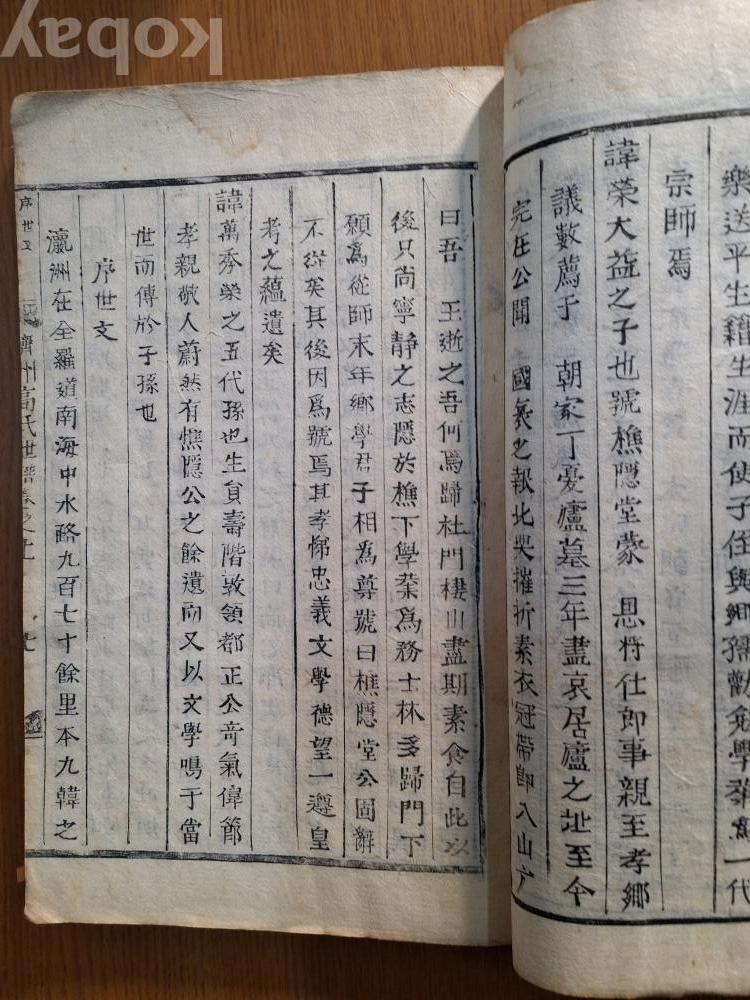 樂送平生籍生涯而使子侄與鄉孺勸勉學業爲一代
宗師焉
諱榮大益之子也號樵隱堂蒙 恩将仕郎事親至孝鄉
議數薦于 朝家丁憂廬墓三年盡哀居廬之址至今
完在公聞 國變之報北哭摧折素衣冠帶卽入山
曰吾 王逝之吾何爲歸杜門棲山盡期素食自此以
後只尚寧静之志隱於樵下學業爲務士林多歸門下
願爲從師末年鄉學君子相爲尊號曰樵隱堂公固辭
不從矣其後因爲號焉其孝悌忠義文學德望一遵皇
考之蘊遺矣
諱萬秀榮之五代孫也生負壽階敦領都正公奇氣偉節
孝親敬人蔚然有樵隱公之餘遺而又以文學鳴于當
世而傳於子孫也
序世文
瀛洲在全羅道南海中水路九百七十餘里本九韓之
序世文 濟州高氏世譜卷之上
kobay